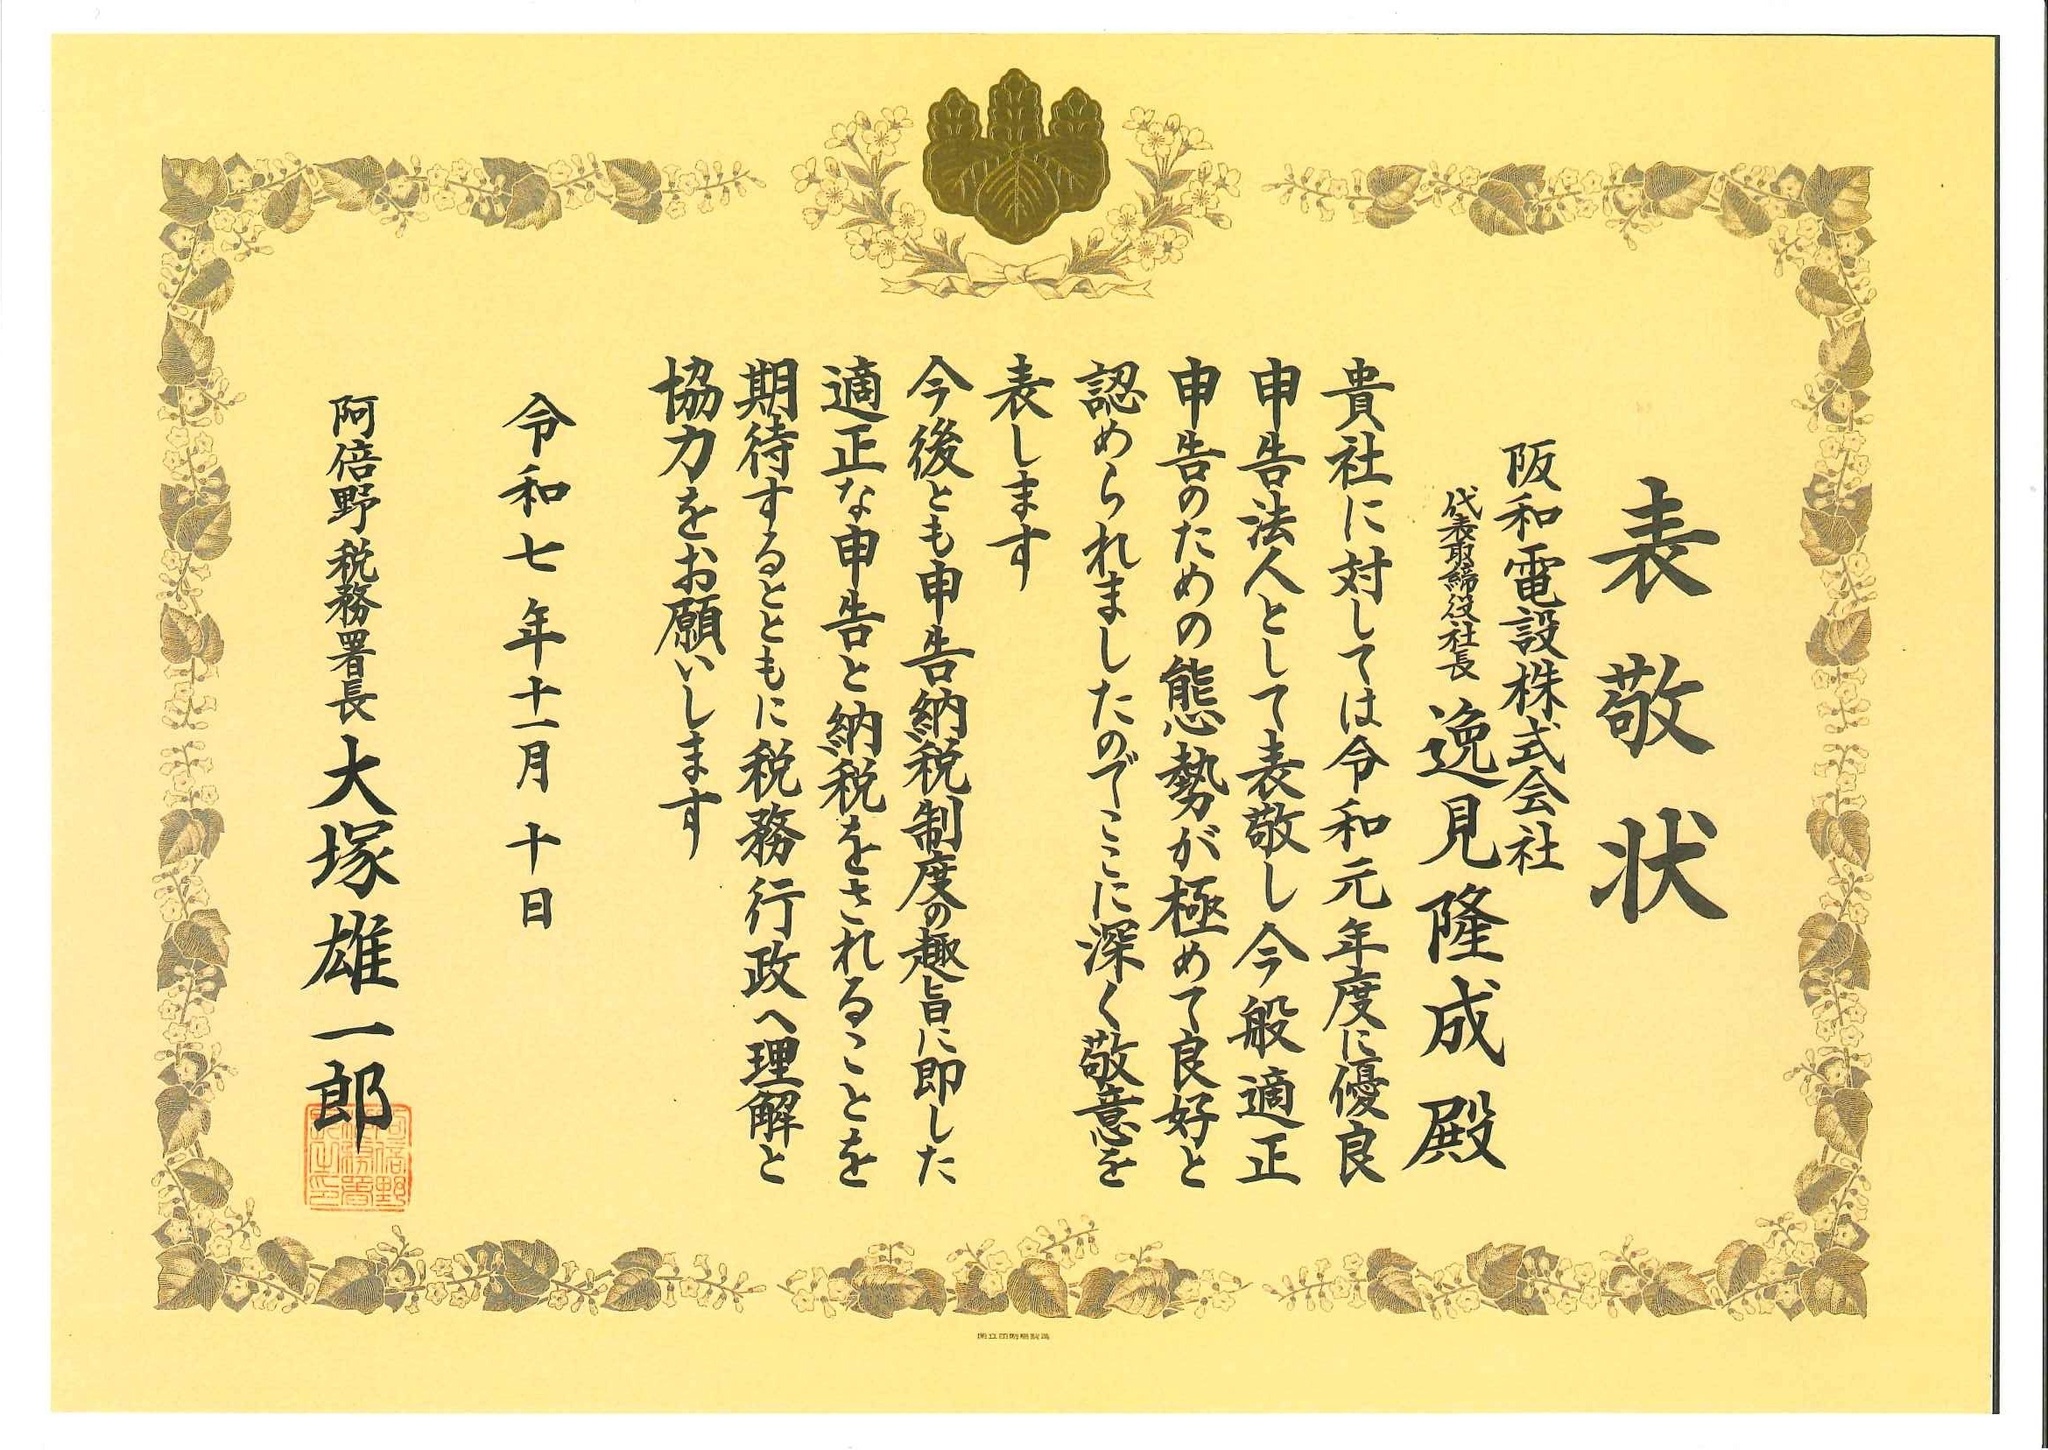 表敬状
阪和電設株式会社
代表取締役社長 逸見隆成殿
貴社に対しては令和元年度に優良
申告法人として表敬し今般適正
申告のための態勢が極めて良好と
認められましたのでここに深く敬意を
表します
今後とも申告納税制度の趣旨に即した
適正な申告と納税をされることを
期待するとともに税務行政へ理解と
協力をお願いします
令和七年十一月十日
阿倍野税務署長 大塚雄一郎
阿倍野税務署長之印
国立印刷局製造